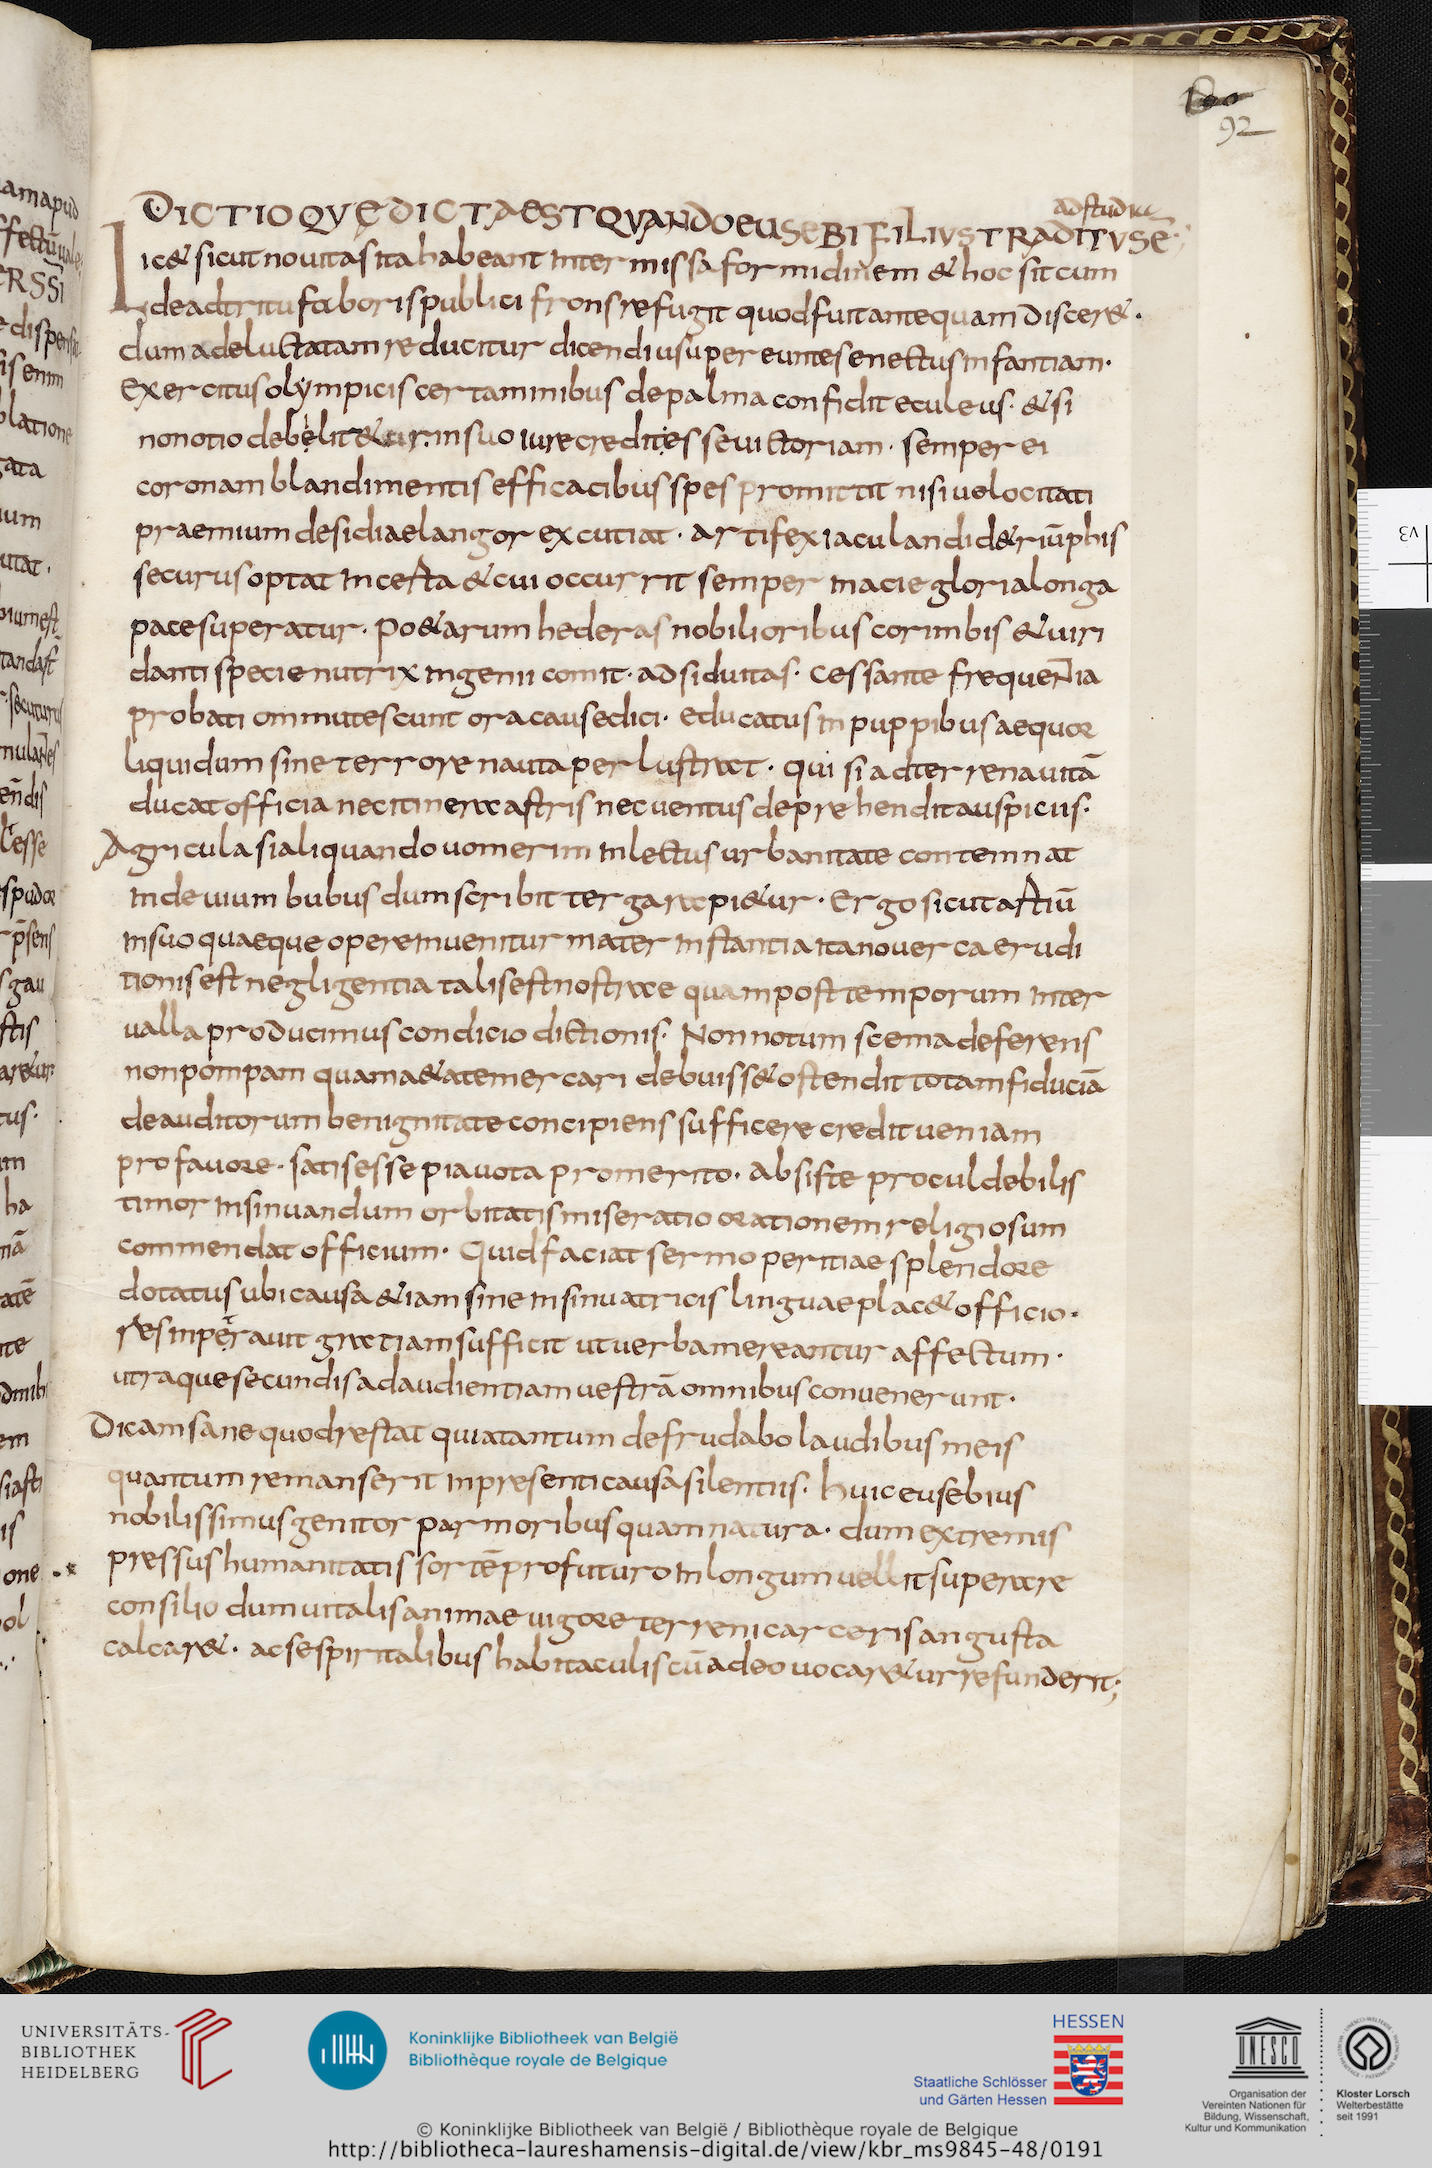 92
ad studiu
DICTIO QVĘ DICTA EST QVANDO EUSEBI FILIVS TRADITVS E;
Lic& sicut nouitas ita habeant intermissa formidinem & hoc sit cum
de adtritu fabori publici frons refugit quod fuit antequam discer&.
dum ad eluctatam reducitur dicendi usu pereunte senectus infantiam.
Exercitus olympicis certaminibus de palma confidit eculeus. & si
non otio debelit&ur. in suo iure credit esse uictoriam. semper ei
coronam blandimentis efficacibus spes promittit nisi uelocitati
praemium desidiae langor excutiat. artifex iaculandi d&riūphis
securus optat incerta & cui occurrit semper in acie gloria longa
pace superatur. Po&arum hederas nobilioribus corimbis & uiri
danti specie nutrix ingenii comit. adsiduitas. cessante frequentia
probati ommutescunt ora causedici. educatus in puppibus aequor
liquidum sine terrore nauta perlustrat. qui si ad terrena uitā
ducat officia nec itinera astris nec uentus deprehendit auspiciis.
Agricula si aliquando uomerim inlectus urbanitate contemnat
in deuium bubus dum scribit terga rapi&ur. Ergo sicut astiū
in suo quaeque opere inuenitur mater instantia ita nouerca erudi
tionis est negligentia talis est nostrae quam post temporum inter
ualla producimus condicio dictionis. Non notum scema deferens
non pompam quam a&ate mercari debuiss& ostendit totam fiduciā
de auditorum benignitate concipiens sufficere credit ueniam
pro fauore. satis esse pia uota pro merito. absiste procul debilis
timor insinuandum orbitatis miseratio orationem religiosum
commendat officium. Quid faciat sermo peritiae splendore
dotatus ubi causa &iam sine insinuatricis linguae plac& officio.
res inperauit gratiam sufficit ut uerba mereantur affectum.
utraque secundis ad audientiam uestrā omnibus conuenerunt.
Dicam sane quod restat quia tantum defrudabo laudibus meis
quantum remanserit in presenti causa silentiis. huic eusebius
nobilissimus genitor par moribus quam natura. dum extremis
pressus humanitatis sortē profuturo in longum uellit superare
consilio dum uitalis animae uigore terreni carceris angusta
calcar&. ac se spiritalibus habitaculis cū a deo uocar&ur refunderit;
UNIVERSITÄTS-
BIBLIOTHEK
HEIDELBERG
Koninklijke Bibliotheek van België
Bibliothèque royale de Belgique
HESSEN
Staatliche Schlösser
und Gärten Hessen
UNESCO
Organisation der
Vereinten Nationen für
Bildung, Wissenschaft,
Kultur und Kommunikation
Kloster Lorsch
Welterbestätte
seit 1991
© Koninklijke Bibliotheek van België / Bibliothèque royale de Belgique
http://bibliotheca-laureshamensis-digital.de/view/kbr_ms9845-48/0191